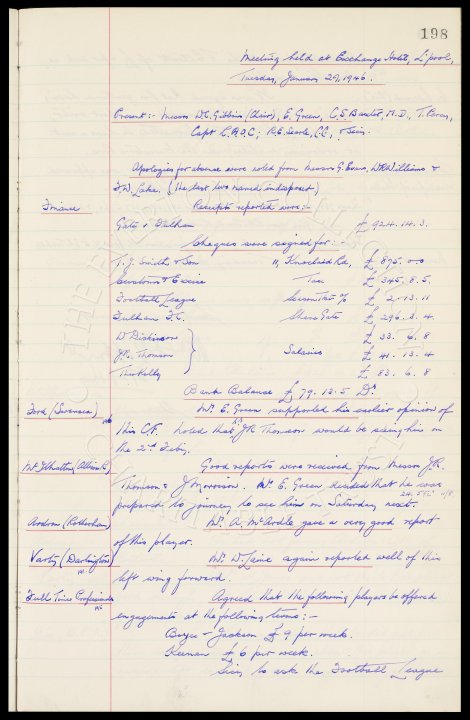 198
Meeting held at Exchange Hotel, L'pool,
Tuesday, January 29, 1946.
Present:- Messrs W.C. Gibbins (Chair), E. Green, C.S. Baxter, M.D., T. Percy,
Capt R.A.O.C; R.E. Searle, C.C., & Secy.
Apologies for absence were noted from Messrs G. Evans, W.R. Williams &
F.W. Lake. (The last two named indisposed)
Finance
Receipts reported were:-
Gate v Fulham £ 924. 14. 3.
Cheques were signed for:-
T.J. Smith & Son 11, Knoclaid Rd, £ 895. 0. 0
Customs & Excise Tax £ 345. 8. 5.
Football League £ 2. 13. 11
Fulham F.C. Share Gate £ 296. 3. 4.
W Dickinson £ 33. 6. 8
J.R. Thomson Salaries £ 41. 13. 4
Theo Kelly £ 83. 6. 8
Bank Balance £ 79. 13. 5 Dr.
Ford (Swansea)
Mr. E. Green supported his earlier opinion of
this C.F. noted that J.R. Thomson would be seeing him on
the 2nd Feby.
Good reports were received from Messrs J.R.
Thomson & J Morrison. Mr. E. Green decided that he was
prepared to journey to see him on Saturday next.
Mr. A. McArdle gave a very good report
of this player.
Varty (Darlington)
Mr. W. Laine again reported well of this
left wing forward.
Full Time Professionals
Agreed that the following players be offered
engagements at the following terms:-
Boyes - Jackson £ 9 per week.
Keenan £ 6 per week.
Secy to ask the Football League